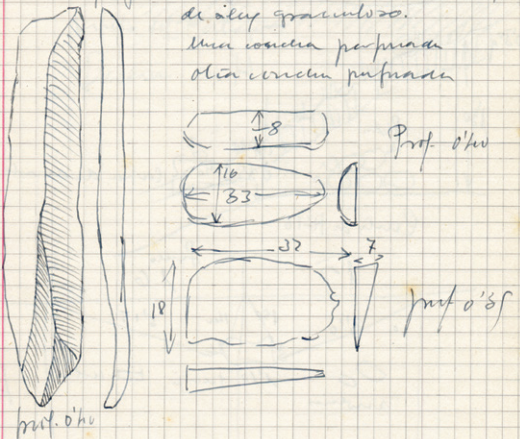 de sílex granuloso.
Una concha perforada
otra concha perforada
8
Prof. 0'40
16
33
32
7
18
prof 0'35
prof. 0'40